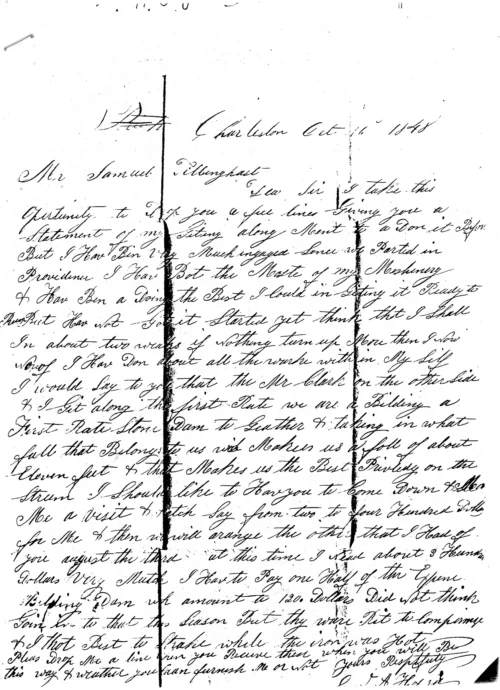 Charleston Oct 16 1848
Mr Samuel Tillinghast
Dear Sir I take this
Opertunity to Drop you a few lines Giving you a
Statement of my Giting along Ment to a Don it Before
But I Hav Bin Very Much engaged Sence we Parted in
Providence I Hav Bot the Moste of my Meshinery
& Hav Bin a Doing the Best I Could in Giting it Ready to
Run But Hav Not Got it Started yet think that I Shall
In about two weaks if Nothing turn up More then I Now
Now of I Have Don about all the worke with in My Self
I would Say to you that the Mr Clark on the other Side
& I Git along the first Rate we are a Bilding a
First Rate Stone Dam to Geather & taking in what
fall that Belong to us wich Makes us a foll of about
Eleven feet & that Makes us the Best Privledg on the
Stream I Should like to Have you to Come Down &
Me a Visit & fetch Say from two to four Hundred Dollars
for Me & then we will arange the other that I Had of
you august the third at this time I Need about 3 Hundred
Dollars Very Mutch I Have to Pay one Half of the Expence
Bilding Dam wh amount to 120 Dollars Did Not think
Doin to that this Season But thy ware Fit to Companye
& I thot Best to Strake while the iron was Hot
Pleas Drop Me a line when you Receve these when you will Be
this way & weather you Can furnish Me or Not Yours Respctfuly